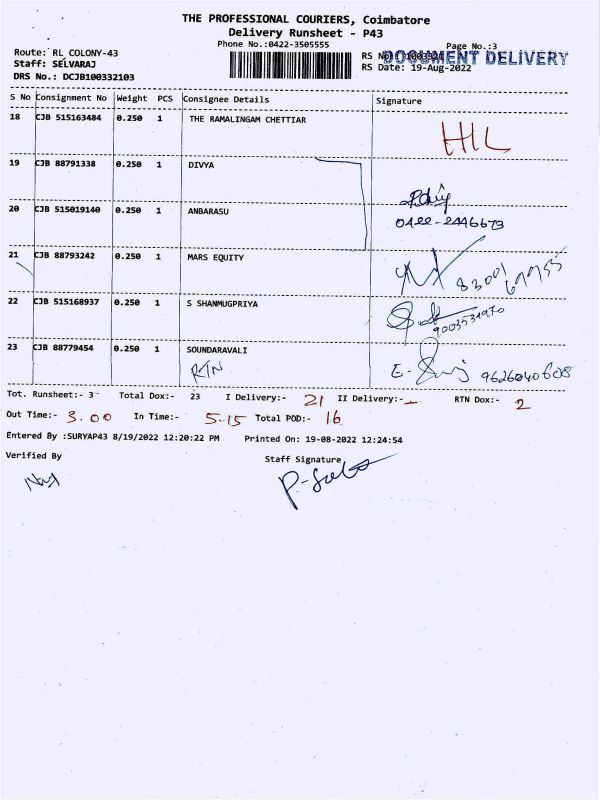 THE PROFESSIONAL COURIERS, Coimbatore
Delivery Runsheet - P43
Phone No.:0422-3505555
Page No.:3
Route: RL COLONY-43
Staff: SELVARAJ
DRS No.: DCJB100332103
RS No.:
DOCUMENT DELIVERY
RS Date: 19-Aug-2022
S No Consignment No Weight PCS Consignee Details Signature
18 CJB 515163484 0.250 1 THE RAMALINGAM CHETTIAR
19 CJB 88791338 0.250 1 DIVYA
20 CJB 515019140 0.250 1 ANBARASU
0422-2446673
21 CJB 88793242 0.250 1 MARS EQUITY
22 CJB 515168937 0.250 1 S SHANMUGPRIYA
9003531970
23 CJB 88779454 0.250 1 SOUNDARAVALI
RTN
9626040608
Tot. Runsheet:- 3 Total Dox:- 23 I Delivery:- 21 II Delivery:- - RTN Dox:- 2
Out Time:- 3.00 In Time:- 5-15 Total POD:- 16
Entered By :SURYAP43 8/19/2022 12:20:22 PM Printed On: 19-08-2022 12:24:54
Verified By Staff Signature